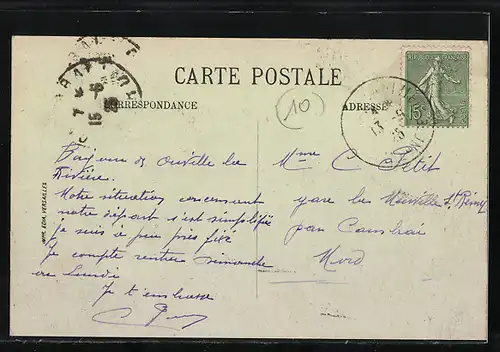 CARTE POSTALE
CORRESPONDANCE
(10)
ADRESSE
15c
Bonjour de Ouville la
Rivière
Notre situation concernant
notre départ s'est simplifiée
Je suis à peu près fixé
Je compte rentrer dimanche
ou Lundi
Je t'embrasse
Mme C Petit
gare de Neuville St Rémy
par Cambrai
Nord
IMP. EDIA, VERSAILLES